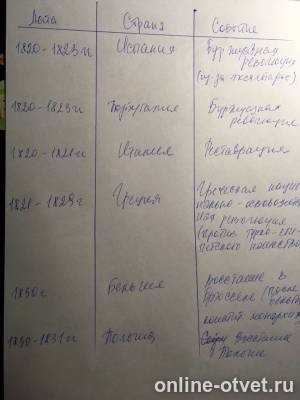 Дата Страна Событие
1820-1823гг Испания Буржуазная
революция
1820-1823гг Португалия Буржуазная
революция
1820-1821гг Италия Реставрация
1821-1829г Греция Греческая нацио
нально-освободитель
ная революция
(против турко-еги-
петского
1830г Бельгия восстание в
Брюсселе (после
1830-1831гг Польша восстание
в Польше
online-otvet.ru